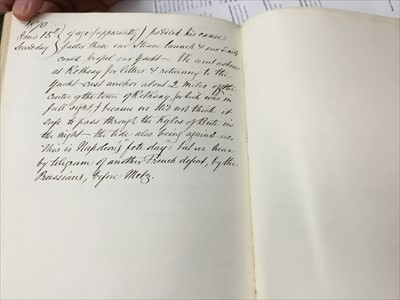 1870
8 mo 15th } of age (apparently) paddled his canoe
Second day } faster than our Steam launch & our boats
could propel our Yacht — We went ashore
at Rothsay for letters & returning to the
Yacht cast anchor about 2 miles off the
the town of Rothsay (which was in
full sight) because we did not think it
safe to pass through the Kyles of Bute in
the night — the tide also being against us.
This is Napoleon's fete day: but we hear
by telegram of another French defeat, by the
Prussians, before Metz.